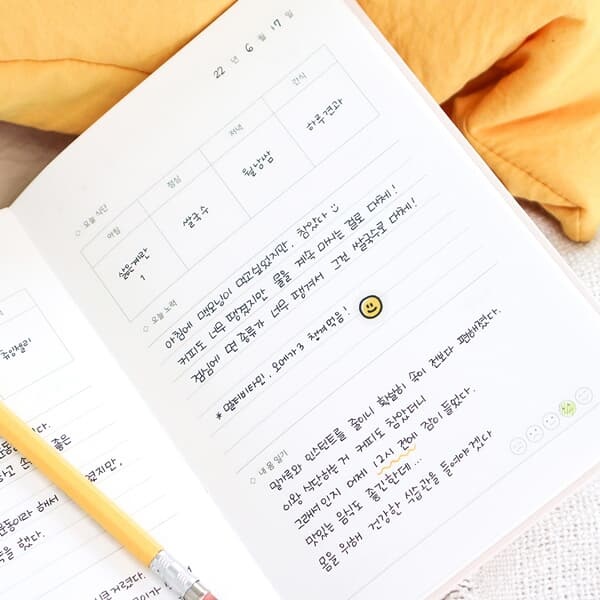 22 년 6 월 17 일
◇ 오늘 식단
아침 점심 저녁 간식
삶은계란 1 쌀국수 월남쌈 하루견과
◇ 오늘 노력
아침에 맥모닝이 먹고싶었지만, 참았다
커피도 너무 땡겼지만 물을 계속 마시는 걸로 대체!
점심에 면 종류가 너무 땡겨서 그건 쌀국수로 대체!
* 멀티비타민, 오메가3 챙겨먹음!
◇ 내 몸 일기
밀가루와 인스턴트를 줄이니 확실히 속이 전보다 편해졌다.
이왕 식단하는 거 커피도 참았더니
그래서인지 어제 12시 전에 잠이 들었다.
맛있는 음식도 좋긴한데...
몸을 위해 건강한 식습관을 들여야겠다